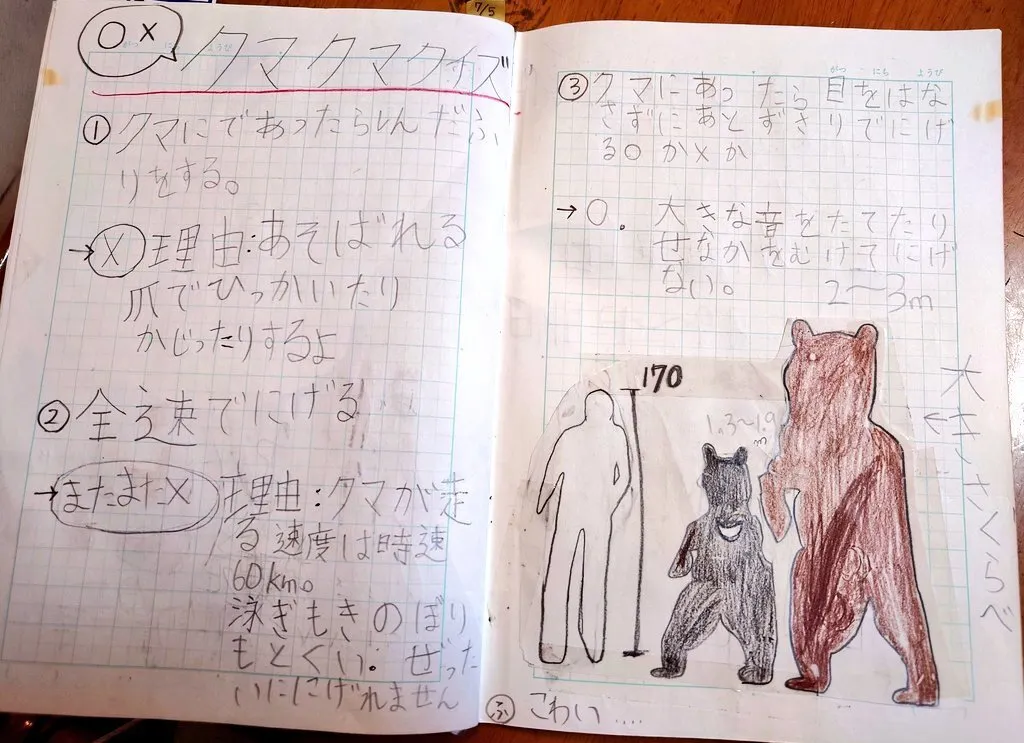 7/5
○×
クマクマクイズ
①クマにであったらしんだふ
りをする。
→× 理由:あそばれる
爪でひっかいたり
かじったりするよ
②全速でにげる
→またまた× 理由:クマが走
る速度は時速
60km。
泳ぎもきのぼり
もとくい。ぜった
いににげれません
がつ にち ようび
③クマにあったら目をはな
さずにあとずさりでにげ
る○か×か
→○. 大きな音をたてたり
せなかをむけてにげ
ない。
2~3m
170
1.3~1.9m
大きさくらべ
←
ふ こわい....